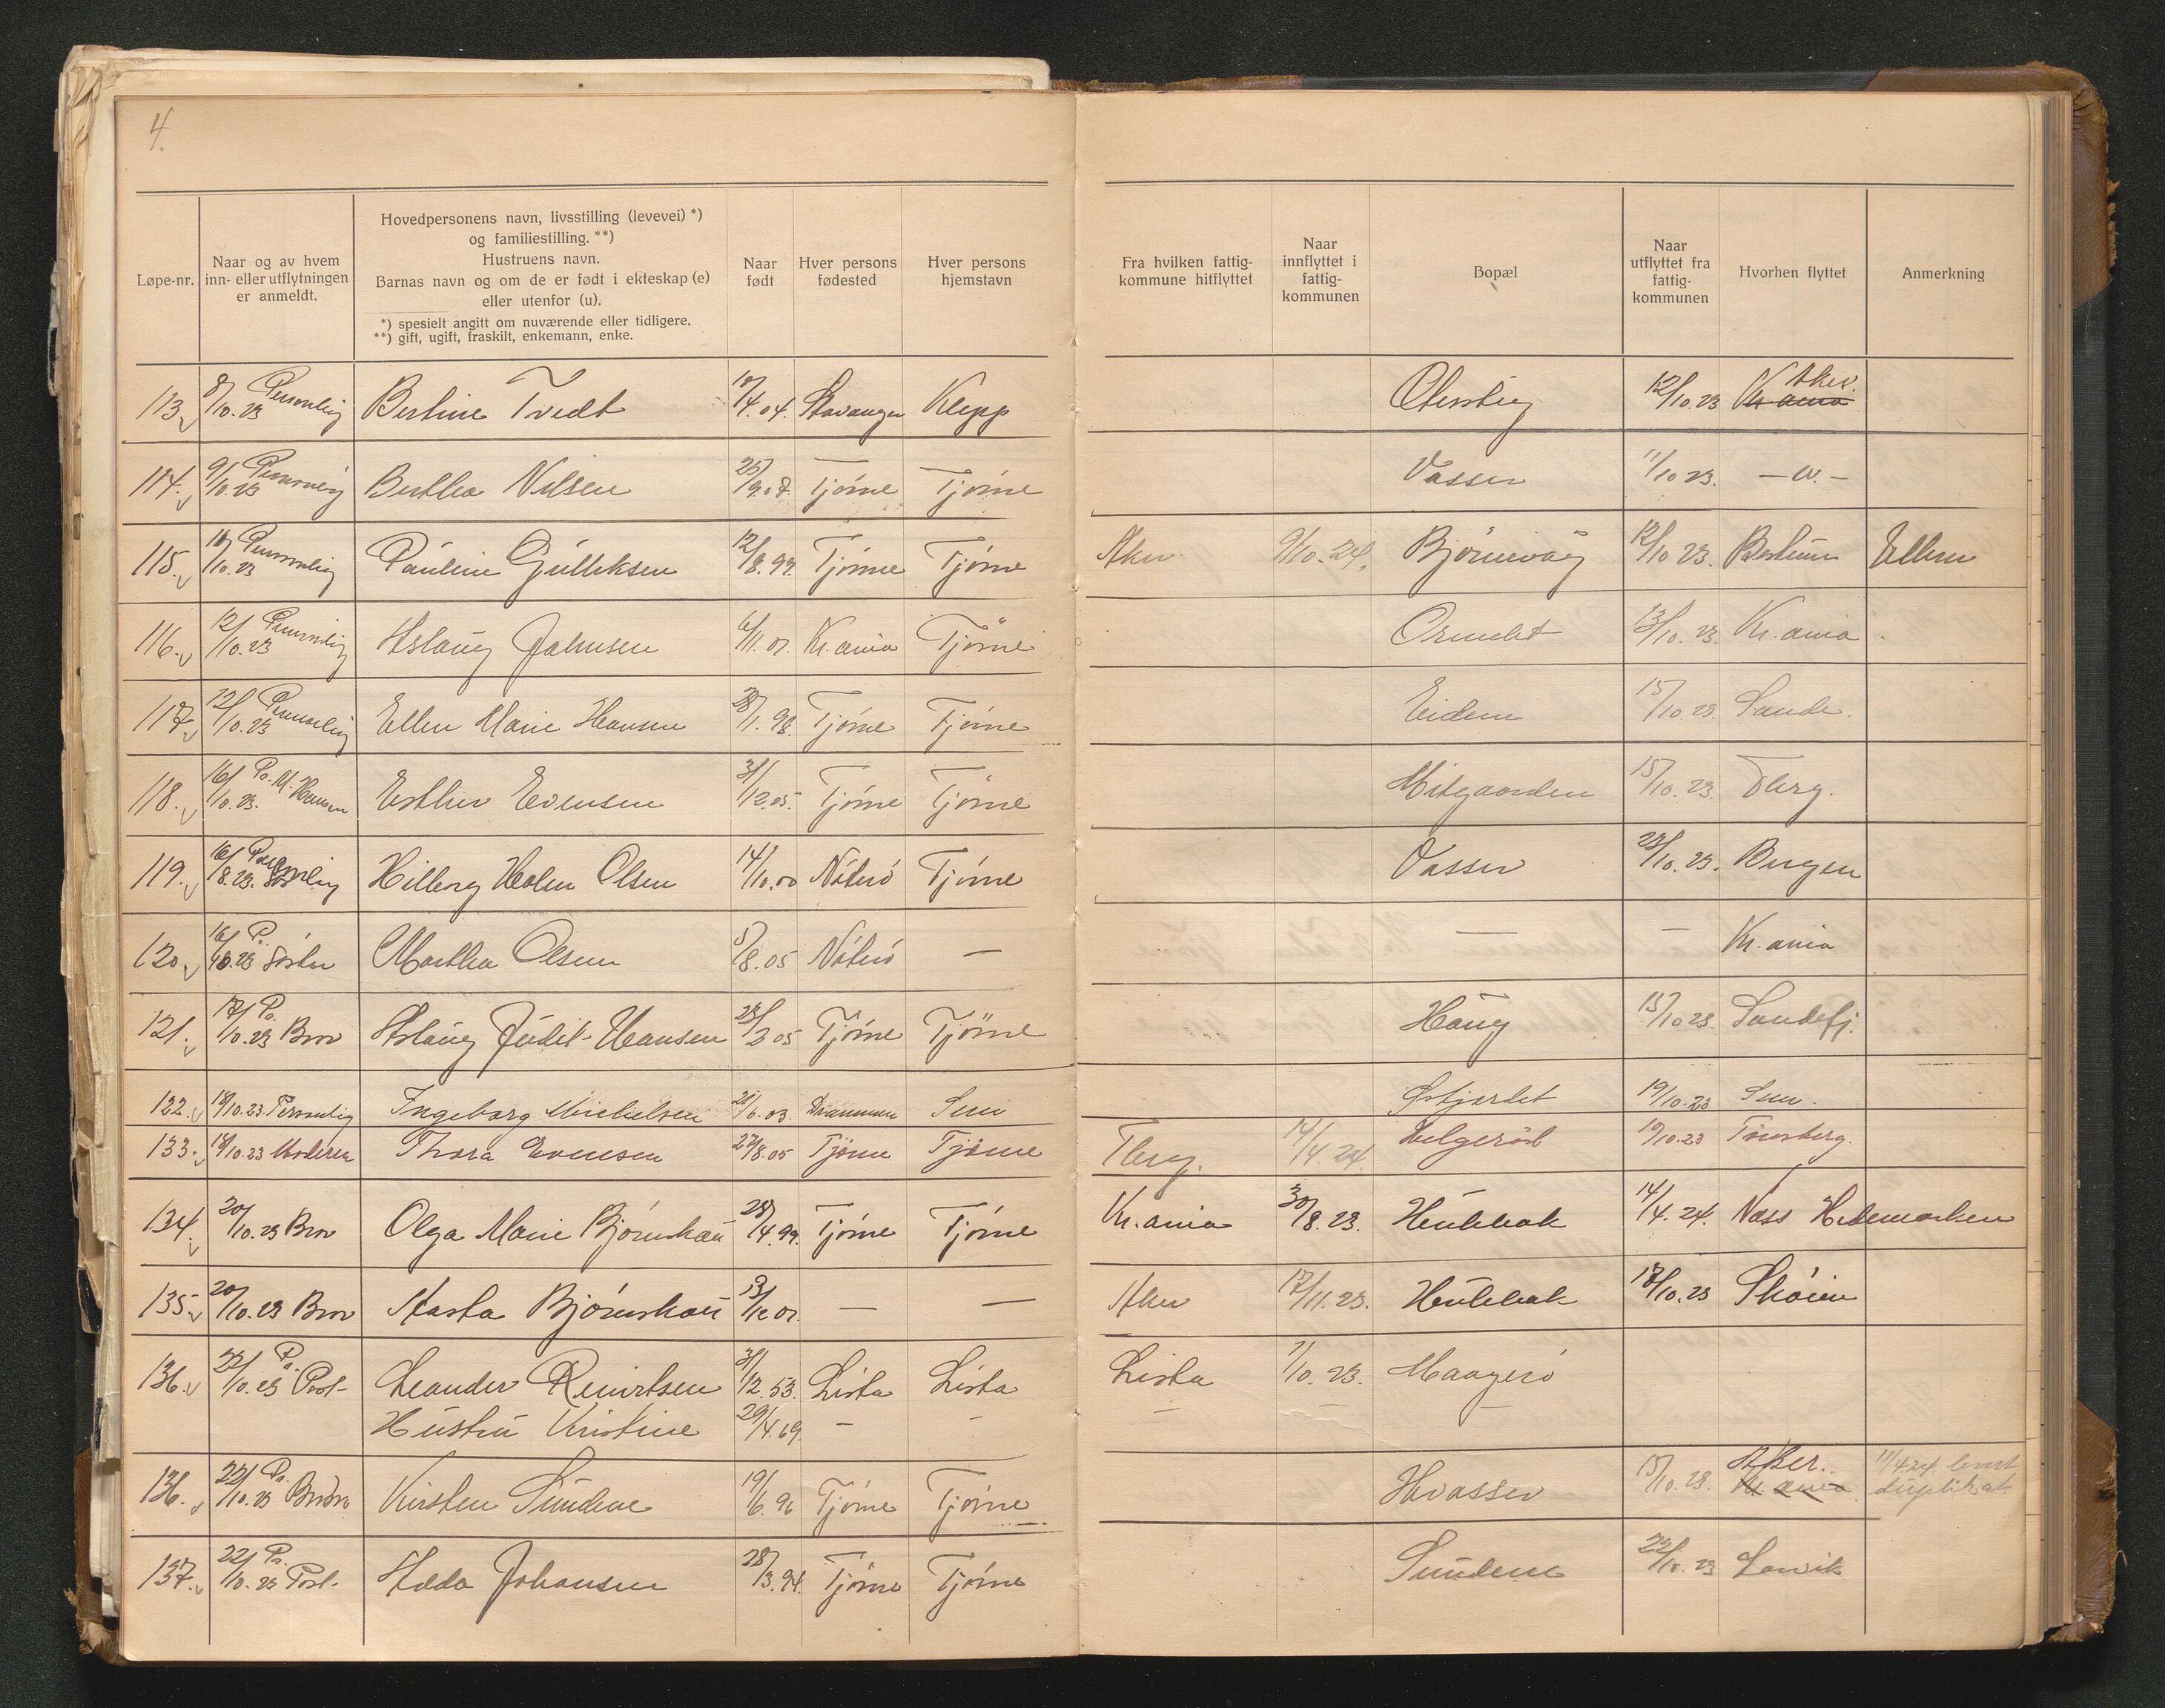 4.
Løpe-nr.
Naar og av hvem
inn- eller utflytningen
er anmeldt.
Hovedpersonens navn, livsstilling (levevei) *)
og familiestilling. **)
Hustruens navn.
Barnas navn og om de er født i ekteskap (e)
eller utenfor (u).
*) spesielt angitt om nuværende eller tidligere.
**) gift, ugift, fraskilt, enkemann, enke.
Naar
født
Hver persons
fødested
Hver persons
hjemstavn
Fra hvilken fattig-
kommune hitflyttet
Naar
innflyttet i
fattig-
kommunen
Bopæl
Naar
utflyttet fra
fattig-
kommunen
Hvorhen flyttet
Anmerkning
113. 8/10.23 Personlig Bertine Tvedt 10/4.04. Stavanger Klepp 12/10.23 Kr.ania Aker.
114. 9/10.23 Personlig Bertha Nilsen 25/9.07. Tjöme Tjöme Vasser 11/10 23.
115. 10/10.23 Personlig Pauline Gulliksen 12/8.99. Tjöme Tjöme Aker 9/10.24. Björnevaag 12/10 23. Bestum
116. 12/10.23 Personlig Aslaug Jahnsen 6/11.07. Kr.ania Tjöme Ormelet 13/10.23. Kr.ania
117. 12/10.23 Personlig Ellen Marie Hansen 28/1.98. Tjöme Tjöme Eidene 15/10.23. Sande.
118. 16/10.23. Pr. M. Hansen Esther Evensen 31/12.05. Tjöme Tjöme Mitgaarden 15/10.23. Tbrg.
119. 16/8.23. Personlig Hilborg Helen Olsen 14/10.00 Nöterö Tjöme Vasser 23/10.23. Bergen
120. 16/10.23 Pr. Söster Martha Olsen 5/8.05 Nöterö — — — Kr.ania
121. 17/10.23 Pr. Bror Aslaug Judit Hansen 23/2 05 Tjöme Tjöme Haug 15/10 23. Sandefj.
122. 18/10.23. Personlig Ingeborg Michelsen 26/6.03. Drammen Sem Østjordet 19/10.23 Sem.
133. 18/10.23 Moderen Thora Evensen 27/8.05 Tjöme Tjöme Tbrg. 14/4.24. Helgeröd 19/10.23 Tönsberg.
134. 20/10.23 Bror Olga Marie Björnskau 28/4.99. Tjöme Tjöme Kr.ania 30/8.23. Hulebak 14/4.24. Næss Hedemarken
135. 20/10.23 Bror Aasta Björnskau 13/12 07. — — Aker 17/11.23. Hulebak 18/10.23 Sköien
136. 22/10.23 Pr. Post- Leander Reinertsen 31/12.53. Lista Lista Lista 1/10.23. Maagerö
Hustru Kristine 29/4.69. — — — — —
136. 22/10.23 Pr. Kirsten Sundene 19/6.96 Tjöme Tjöme Hvasser 15/10.23. Kr.ania Aker. 11/4.24. levert
duplikat
137. 22/10.23 Pr. Post- Hilda Johansen 28/3.94. Tjöme Tjöme Sundene 22/10.23 Larvik